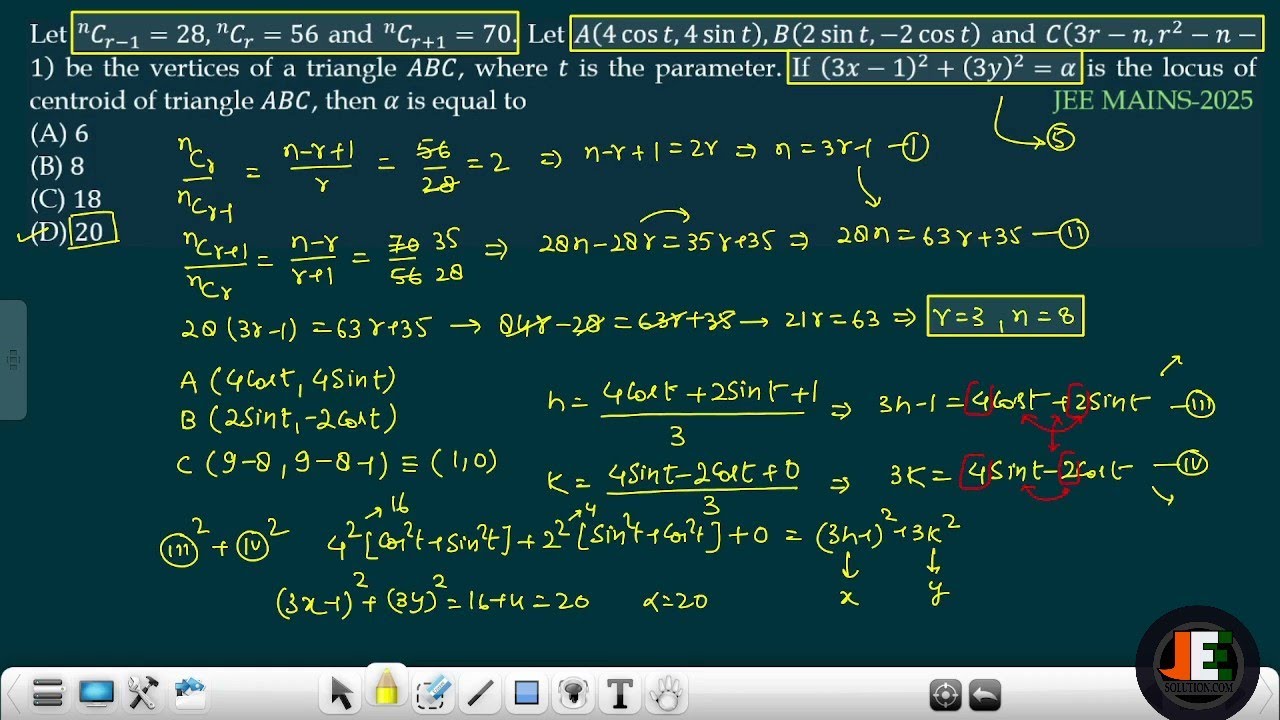 Let ⁿCᵣ₋₁ = 28, ⁿCᵣ = 56 and ⁿCᵣ₊₁ = 70. Let A(4 cos t, 4 sin t), B(2 sin t, −2 cos t) and C(3r − n, r² − n −
1) be the vertices of a triangle ABC, where t is the parameter. If (3x − 1)² + (3y)² = α is the locus of
centroid of triangle ABC, then α is equal to JEE MAINS-2025
(A) 6
(B) 8
(C) 18
(D) 20
⑤
ⁿCᵣ/ⁿCᵣ₋₁ = (n-r+1)/r = 56/28 = 2 ⇒ n-r+1 = 2r ⇒ n = 3r-1 -Ⓘ
ⁿCᵣ₊₁/ⁿCᵣ = (n-r)/(r+1) = 70/56 35/28 ⇒ 28n-28r = 35r+35 ⇒ 28n = 63r+35 -Ⓘⓘ
28(3r-1) = 63r+35 → 84r-28 = 63r+35 → 21r = 63 ⇒ r=3, n=8
A (4cost, 4Sint)
B (2Sint, -2cost)
C (9-8, 9-8-1) ≡ (1,0)
h = (4cost+2Sint+1)/3 ⇒ 3h-1 = 4cost+2Sint -(III)
K = (4Sint-2cost+0)/3 ⇒ 3K = 4Sint-2cost -(IV)
(III)² + (IV)² 4²[cos²t+sin²t] + 2²[sin²t+cos²t] + 0 = (3h-1)²+3k²
16 4
x y
(3x-1)² + (3y)² = 16+4 = 20 α=20
T
JE
SOLUTION.COM